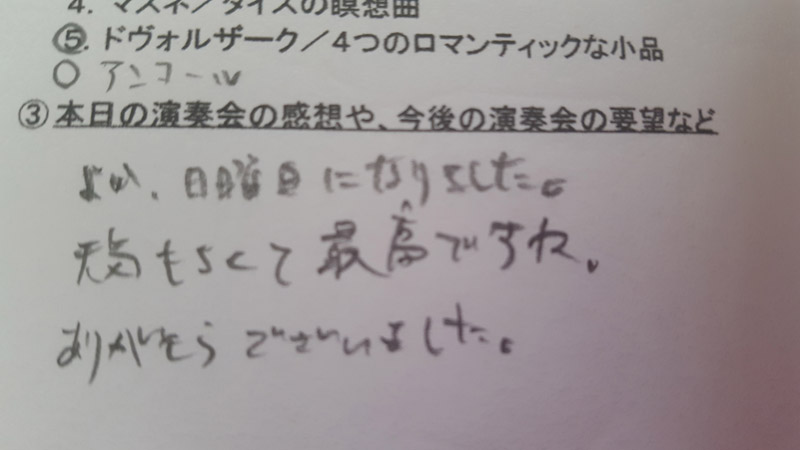 4. マスネ／タイスの瞑想曲
⑤. ドヴォルザーク／4つのロマンティックな小品
○ アンコール
③本日の演奏会の感想や、今後の演奏会の要望など
よか、日曜日になりました。
天気もよくて最高ですね。
ありがとうございました。